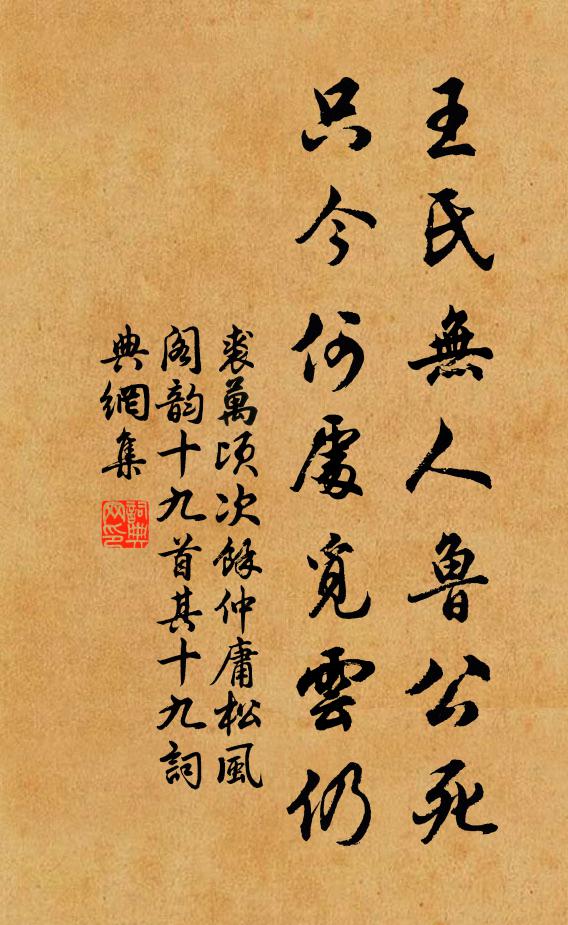 王氏無人魯公死
只今何處覓雲仍
裘萬頃次餘仲庸松風
閣韵十九首其十九詞
典網集
詞典
网印